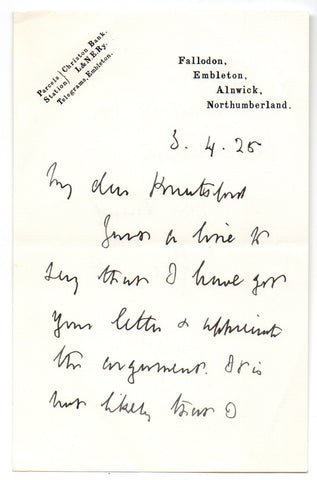 Parcels
Station
Christon Bank.
L&N.E.Ry.
Telegrams, Embleton.
Fallodon,
Embleton,
Alnwick,
Northumberland.
3. 4. 25
My dear Knutsford
Just a line to
say that I have got
your letter & appreciate
the argument. It is
not likely that I